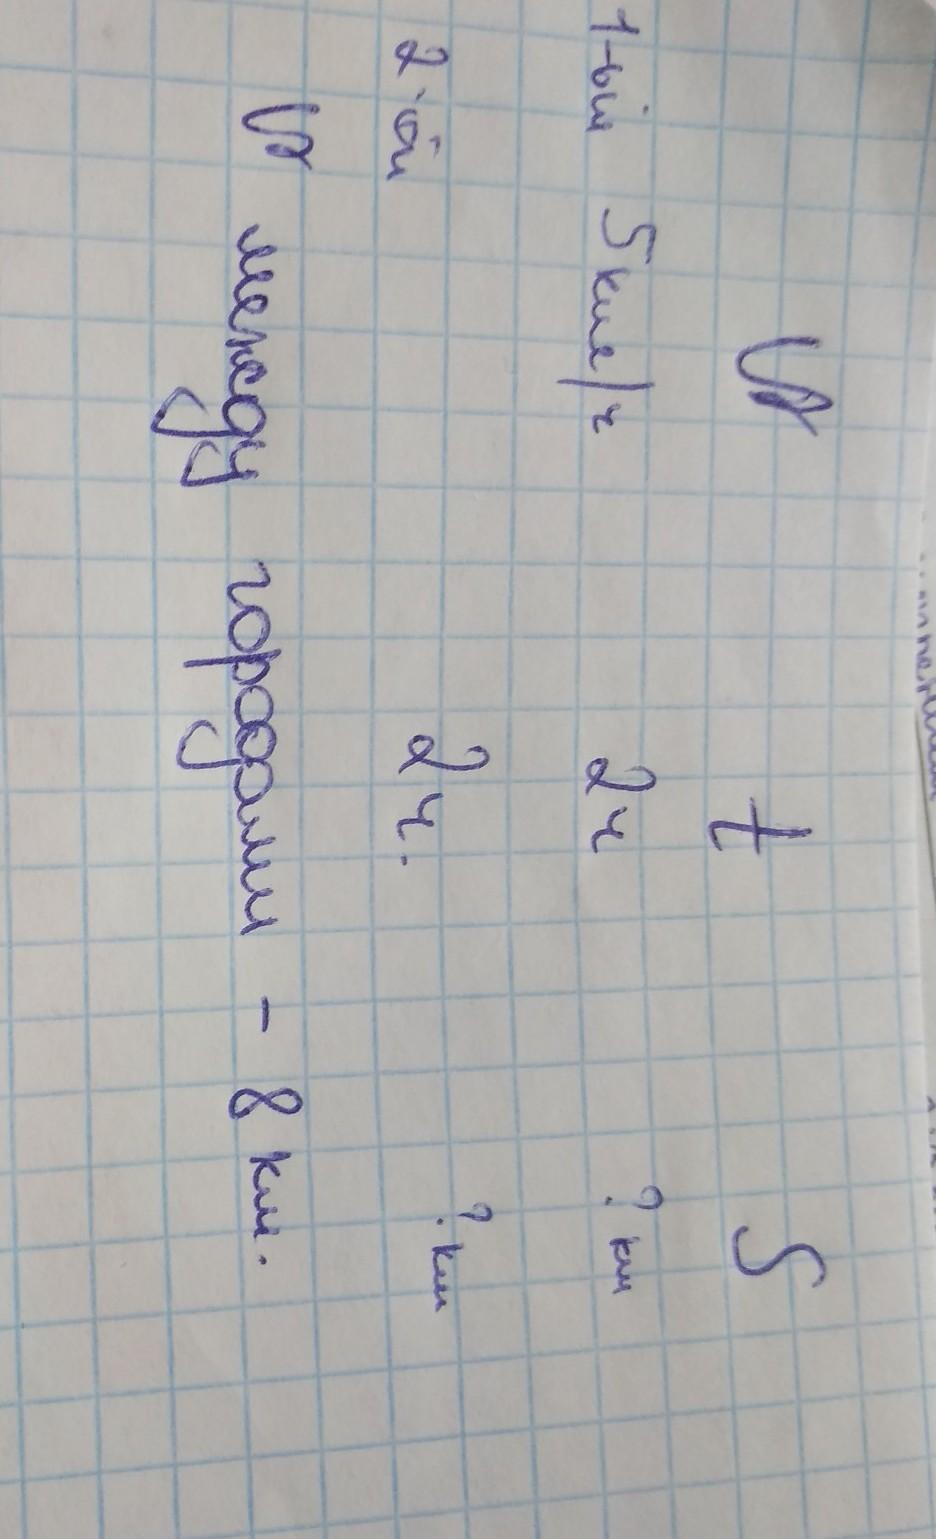 V t S
1-ый 5 км/ч 2 ч ? км
2-ой 2 ч. ? км
V между городами - 8 км.